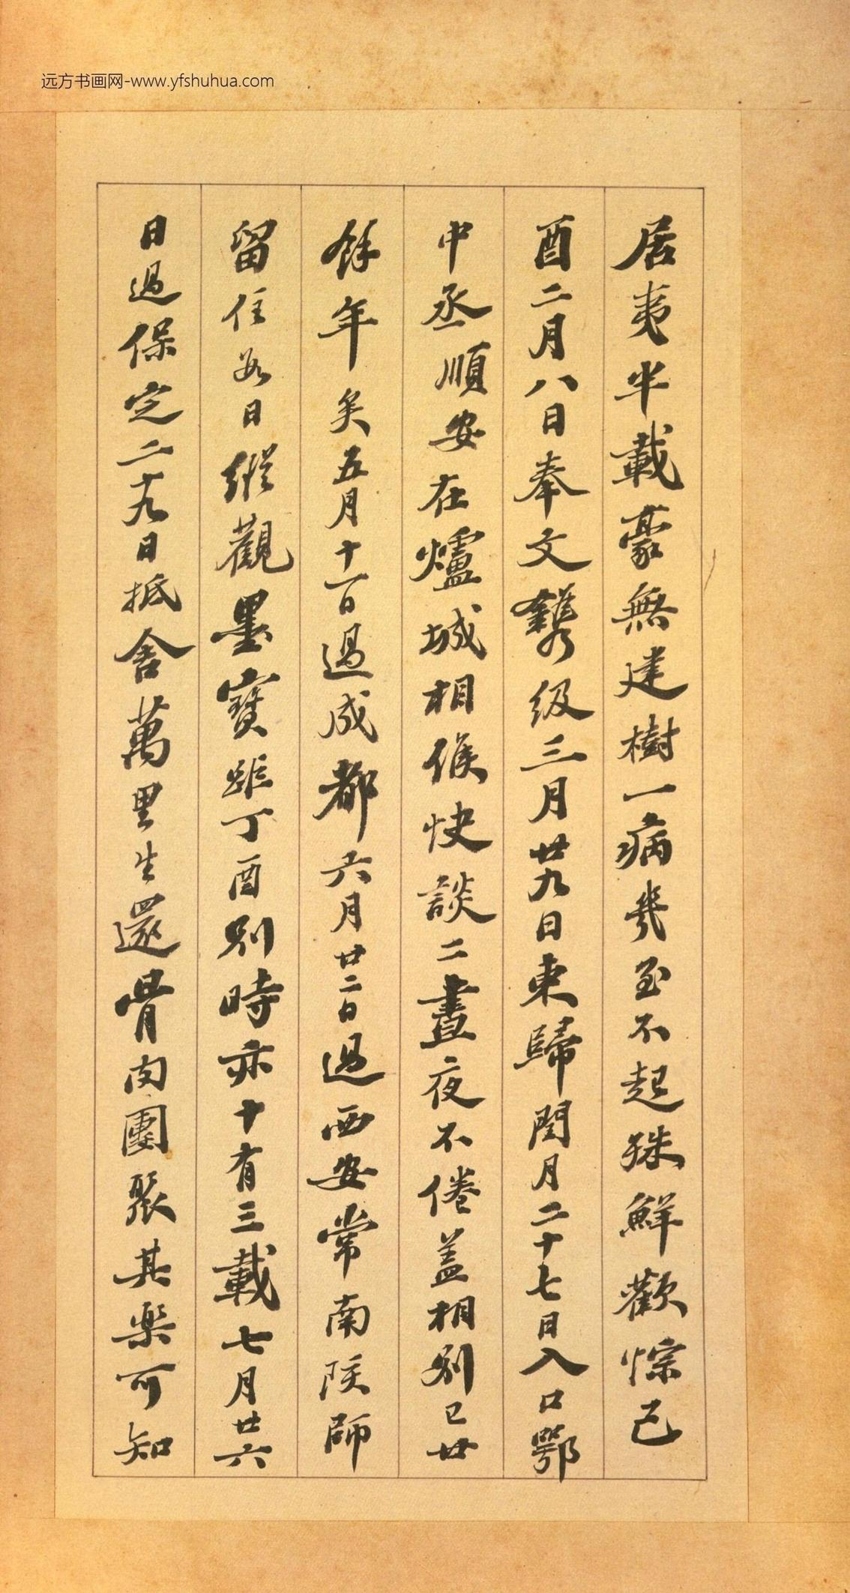 远方书画网-www.yfshuhua.com
居夷半載豪無建樹一病幾至不起殊鮮歡悰己
酉二月八日奉文鐫級三月廿九日東歸閏月二十七日入口鄂
中丞順安在爐城相候快談二晝夜不倦蓋相別已廿
餘年矣五月十一日過成都六月廿二日過西安常南陔師
留住數日縱觀墨寶距丁酉別時亦十有三載七月廿六
日過保定二十九日抵舍萬里生還骨肉團聚其樂可知